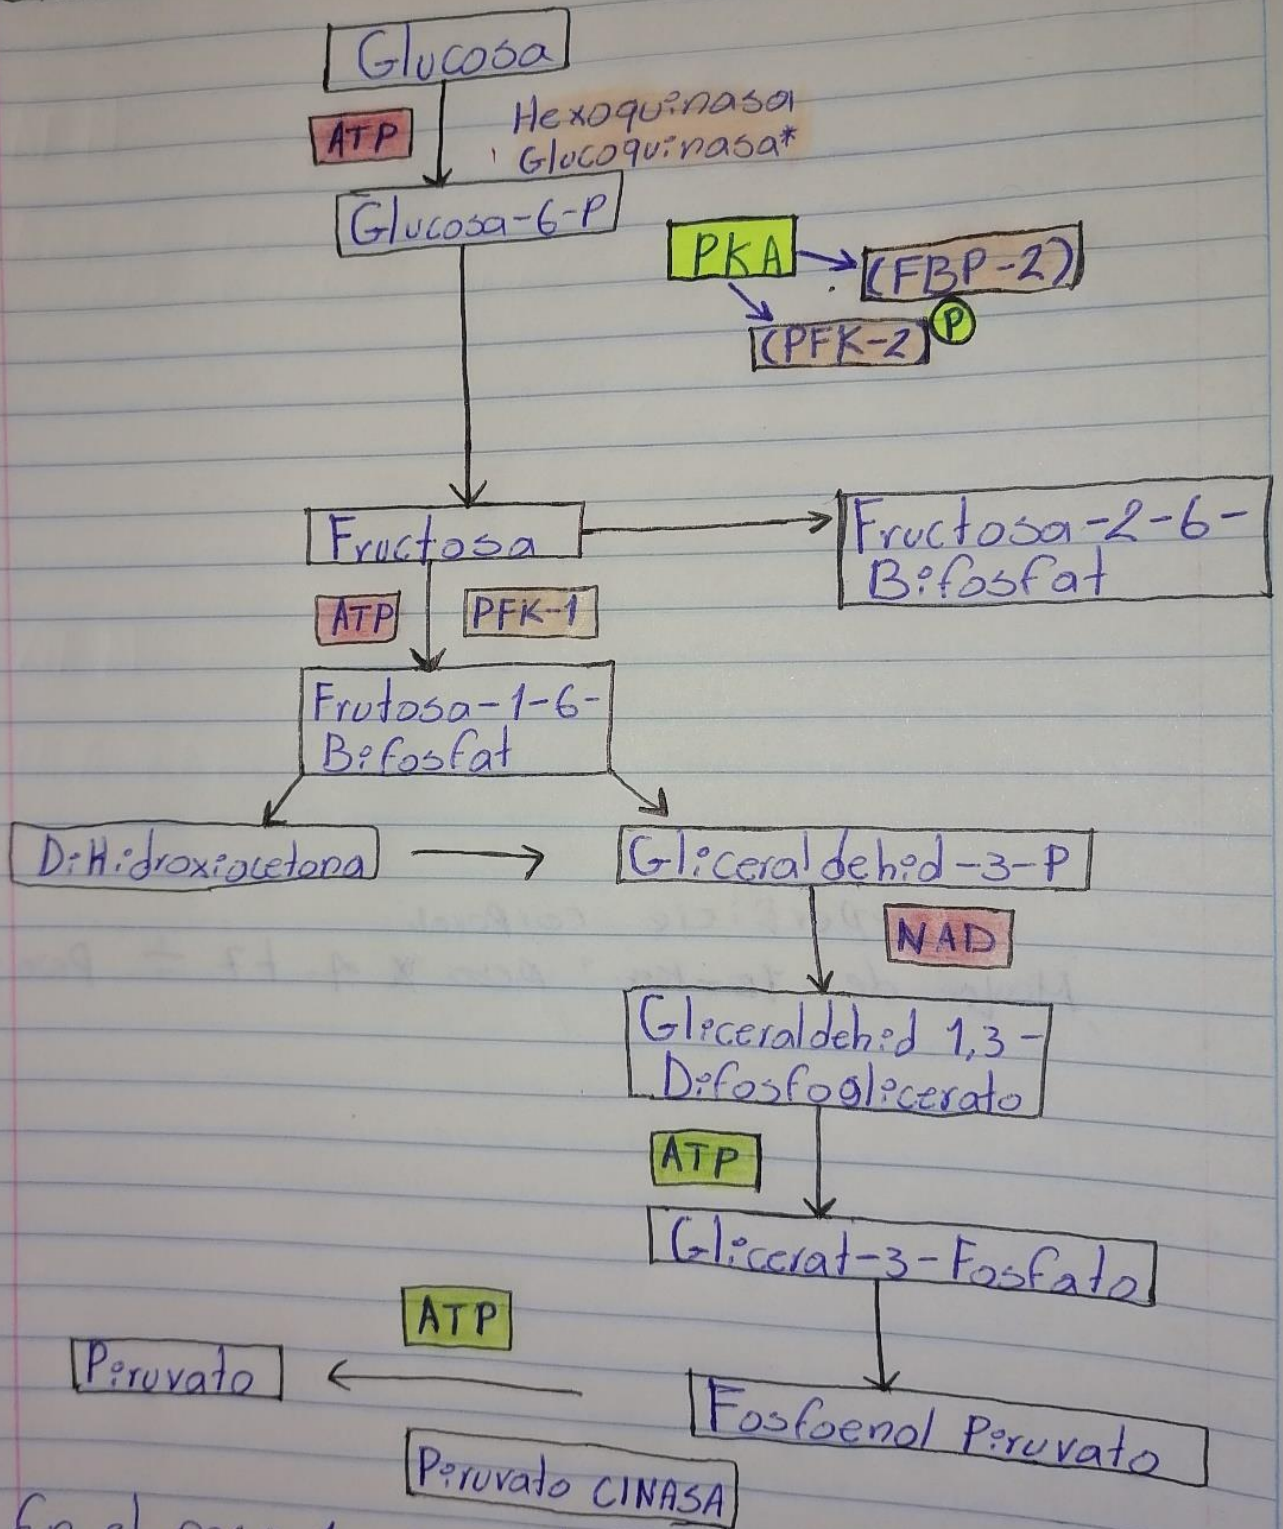 Glucosa
ATP
Hexoquinasa
Glucoquinasa*
Glucosa-6-P
PKA
(FBP-2)
(PFK-2)
P
Fructosa
Fructosa-2-6-
Bifosfat
ATP
PFK-1
Frutosa-1-6-
Bifosfat
DiHidroxiacetona
Gliceraldehid-3-P
NAD
Gliceraldehid 1,3-
Difosfoglicerato
ATP
Glicerat-3-Fosfato
ATP
Piruvato
Fosfoenol Piruvato
Piruvato CINASA